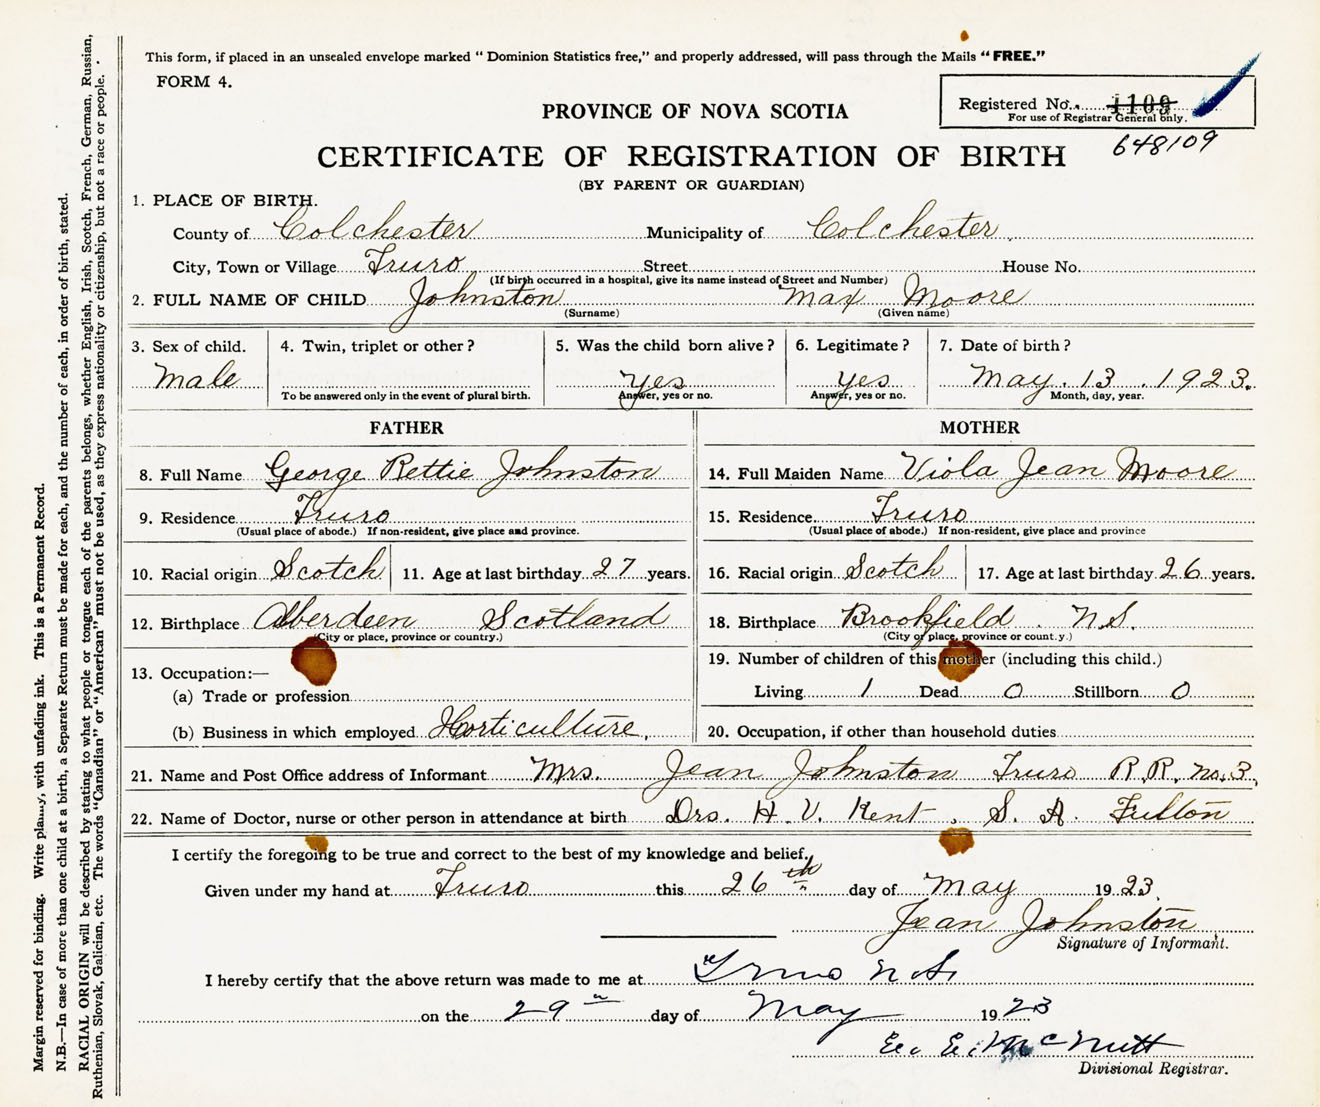 This form, if placed in an unsealed envelope marked “ Dominion Statistics free,” and properly addressed, will pass through the Mails “ FREE.”
FORM 4.
Registered No. 1109
For use of Registrar General only.
648109
PROVINCE OF NOVA SCOTIA
CERTIFICATE OF REGISTRATION OF BIRTH
(BY PARENT OR GUARDIAN)
1. PLACE OF BIRTH.
County of Colchester Municipality of Colchester
City, Town or Village Truro Street House No.
(If birth occurred in a hospital, give its name instead of Street and Number)
2. FULL NAME OF CHILD Johnston Max Moore
(Surname) (Given name)
3. Sex of child. 4. Twin, triplet or other ? 5. Was the child born alive ? 6. Legitimate ? 7. Date of birth ?
Male yes yes May. 13. 1923.
To be answered only in the event of plural birth. Answer, yes or no. Answer, yes or no. Month, day, year.
FATHER MOTHER
8. Full Name George Rettie Johnston 14. Full Maiden Name Viola Jean Moore
9. Residence Truro 15. Residence Truro
(Usual place of abode.) If non-resident, give place and province. (Usual place of abode.) If non-resident, give place and province
10. Racial origin Scotch 11. Age at last birthday 27 years. 16. Racial origin Scotch 17. Age at last birthday 26 years.
12. Birthplace Aberdeen Scotland 18. Birthplace Brookfield. N.S.
(City or place, province or country.) (City or place, province or count.y.)
13. Occupation:— 19. Number of children of this mother (including this child.)
(a) Trade or profession Living 1 Dead 0 Stillborn 0
(b) Business in which employed Horticulture, 20. Occupation, if other than household duties
21. Name and Post Office address of Informant Mrs. Jean Johnston Truro R.R. No. 3,
22. Name of Doctor, nurse or other person in attendance at birth Drs. H. V. Kent, S. A. Fulton
I certify the foregoing to be true and correct to the best of my knowledge and belief.
Given under my hand at Truro this 26th day of May 1923.
Jean Johnston
Signature of Informant.
I hereby certify that the above return was made to me at Truro N.S.
on the 29th day of May 1923
E. E. McNutt
Divisional Registrar.
Margin reserved for binding. Write plainly, with unfading ink. This is a Permanent Record.
N.B.—In case of more than one child at a birth, a Separate Return must be made for each, and the number of each, in order of birth, stated.
RACIAL ORIGIN will be described by stating to what people or tongue each of the parents belongs, whether English, Irish, Scotch, French, German, Russian,
Ruthenian, Slovak, Galician, etc. The words “Canadian” or “American” must not be used, as they express nationality or citizenship, but not a race or people.